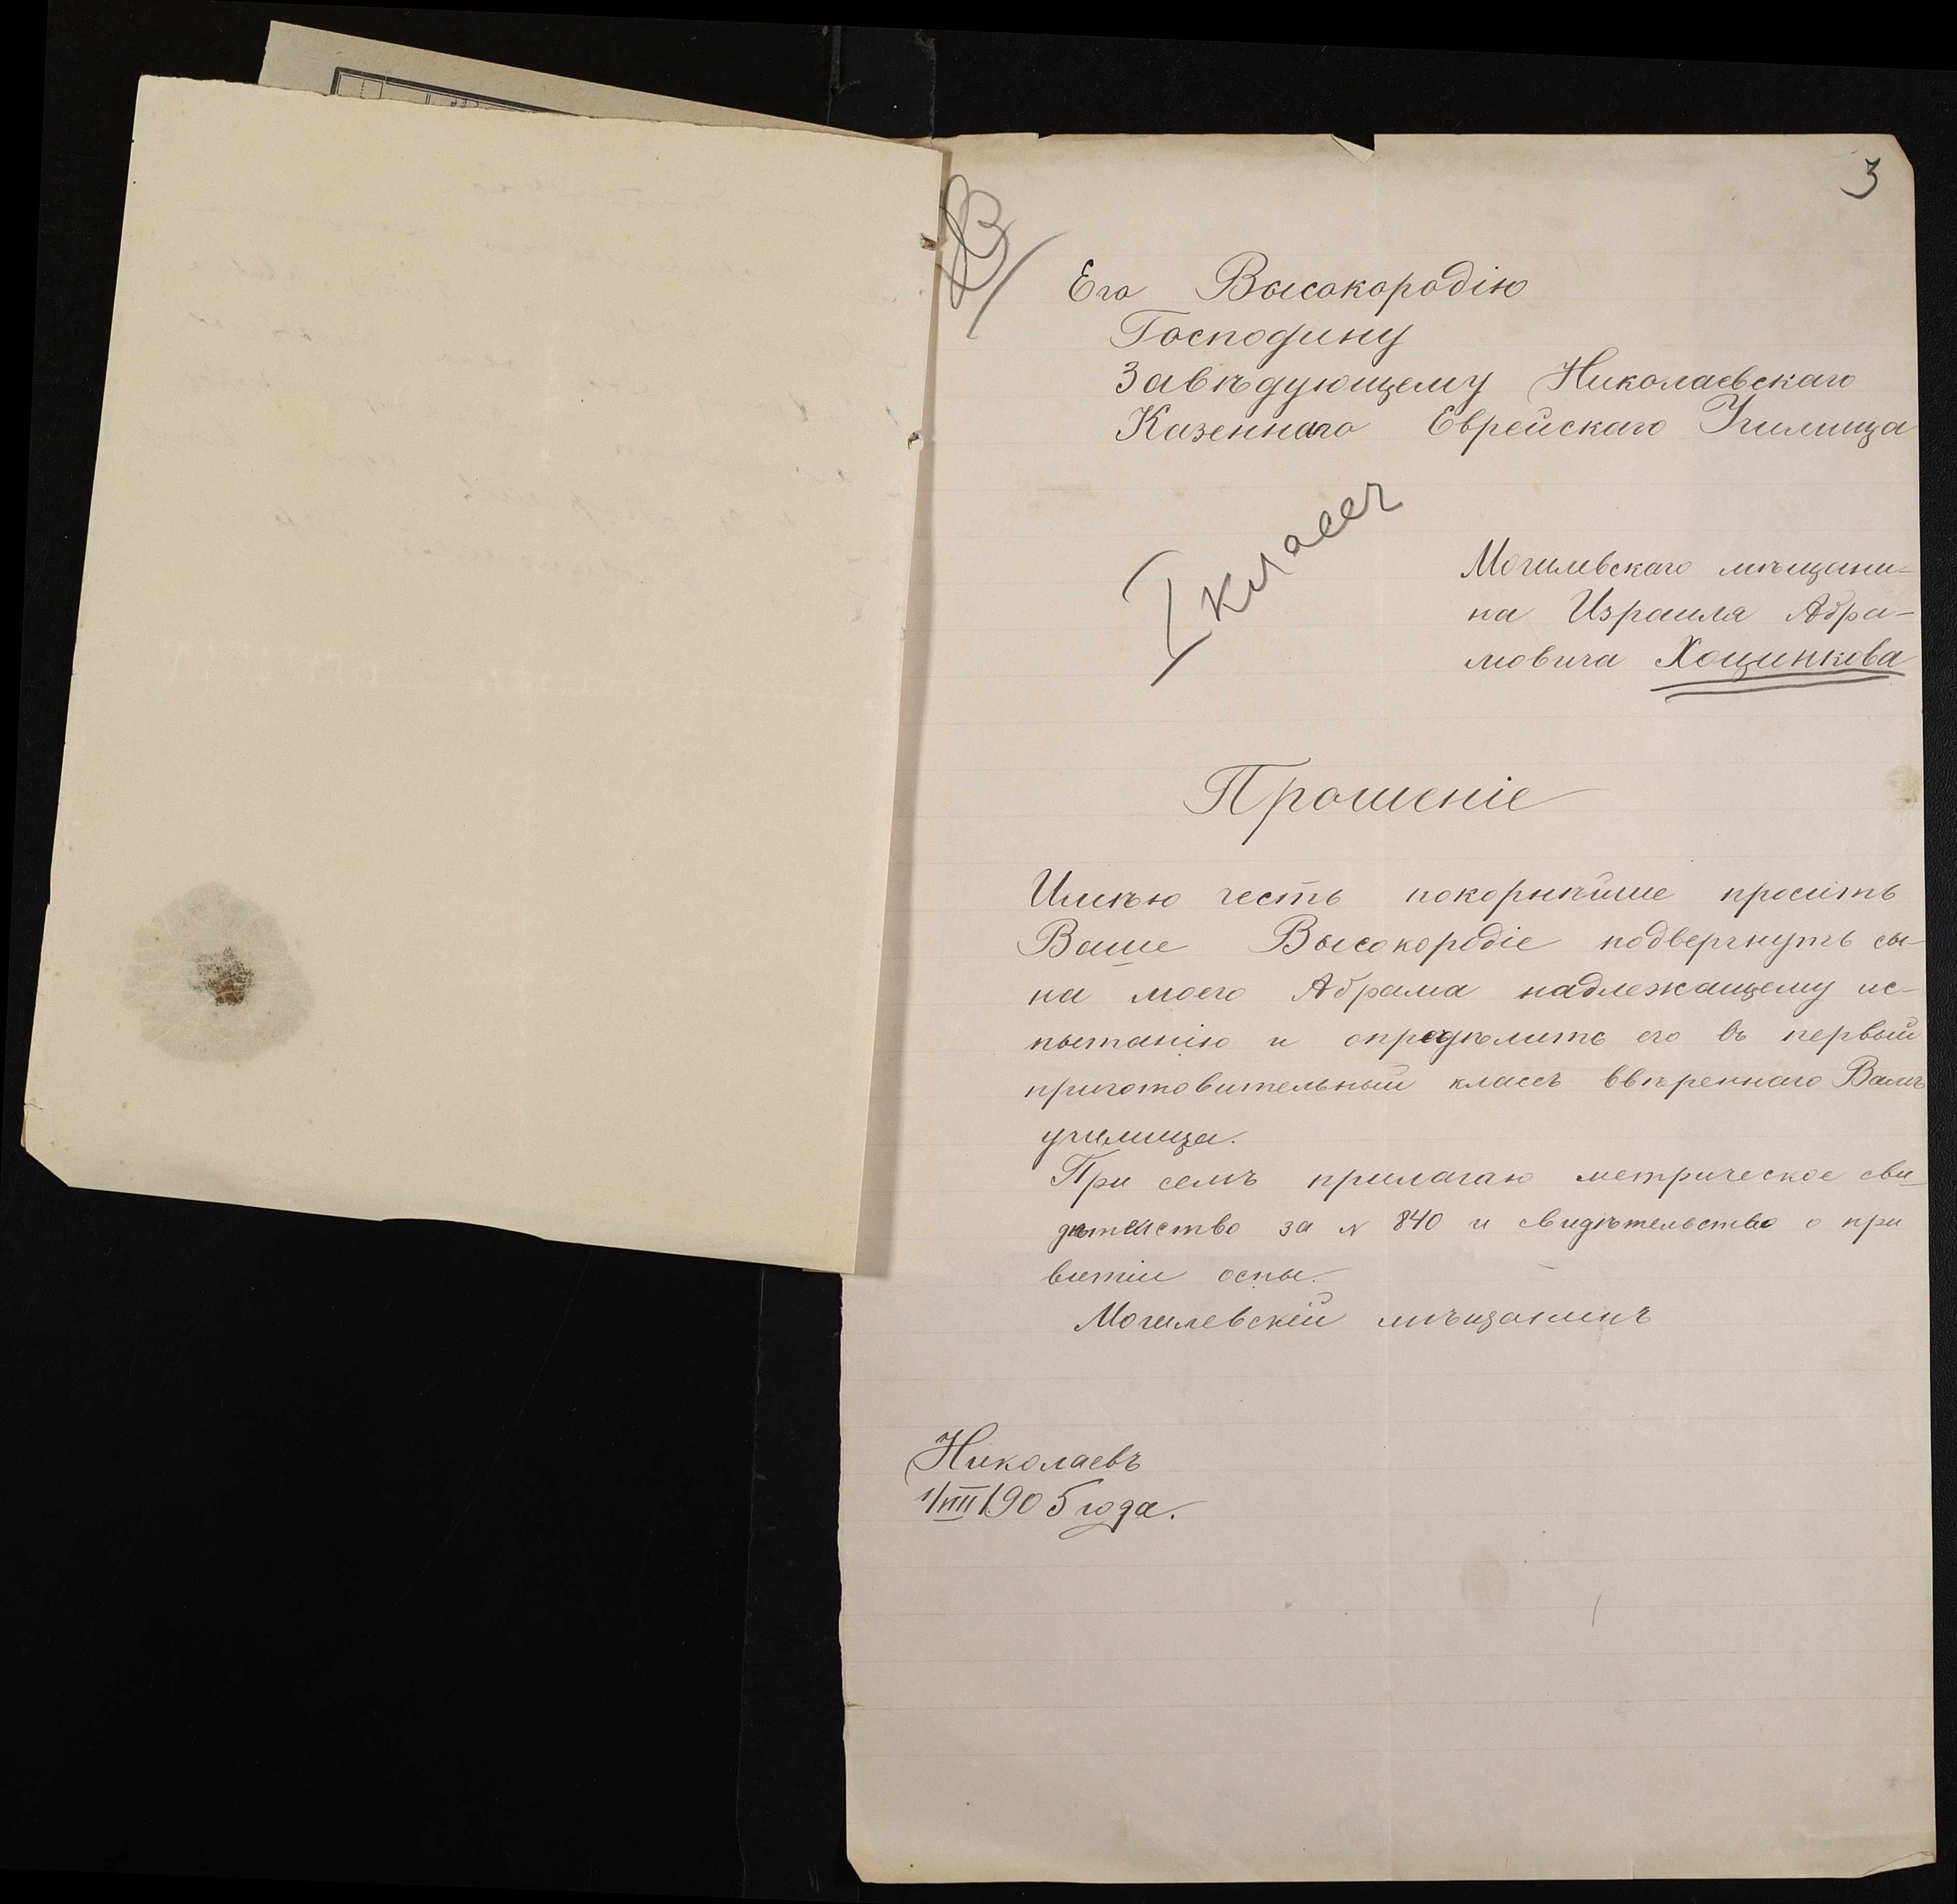 3
Его Высокородію
Господину
Завѣдующему Николаевскаго
Казеннаго Еврейскаго Училища
I классъ
Могилевскаго мѣщани-
на Израиля Абра-
мовича Хощинкова
Прошеніе
Имѣю честь покорнѣйше просить
Ваше Высокородіе подвергнуть сы-
на моего Абрама надлежащему ис-
пытанію и опредѣлить его въ первый
приготовительный классъ ввѣреннаго Вамъ
училища.
При семъ прилагаю метрическое сви-
дѣтельство за № 840 и свидѣтельство о при
витіи оспы.
Могилевскій мѣщанинъ
Николаевъ
1/VIII 1905 года.